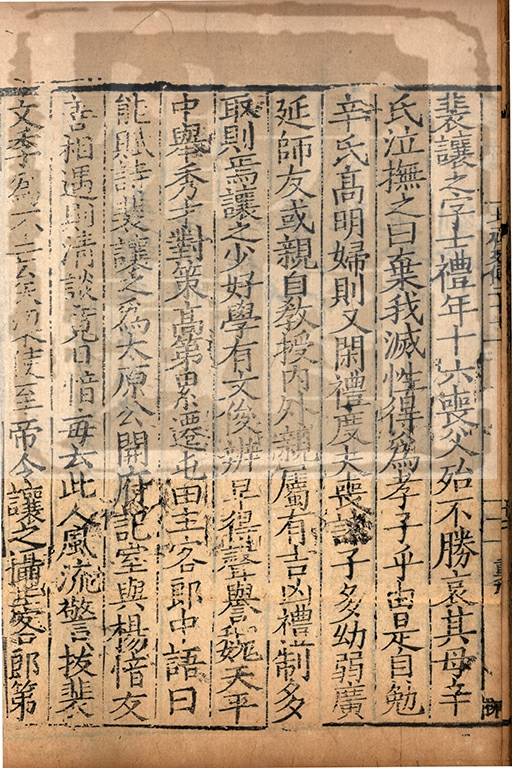 裴讓之字士禮年十六喪父殆不勝哀其母辛
氏泣撫之曰棄我滅性得爲孝子乎由是自勉
辛氏髙明婦則又閑禮度夫喪諸子多幼弱廣
延師友或親自教授内外親屬有吉凶禮制多
取則焉讓之少好學有文俊辨早得聲譽魏天平
中舉秀才對策髙第累遷屯田主客郎中語曰
能賦詩裴讓之爲太原公開府記室與楊愔友
善相遇則清談竟日愔每云此人風流警拔裴
文季爲不亡矣梁使至帝令讓之攝主客郎第